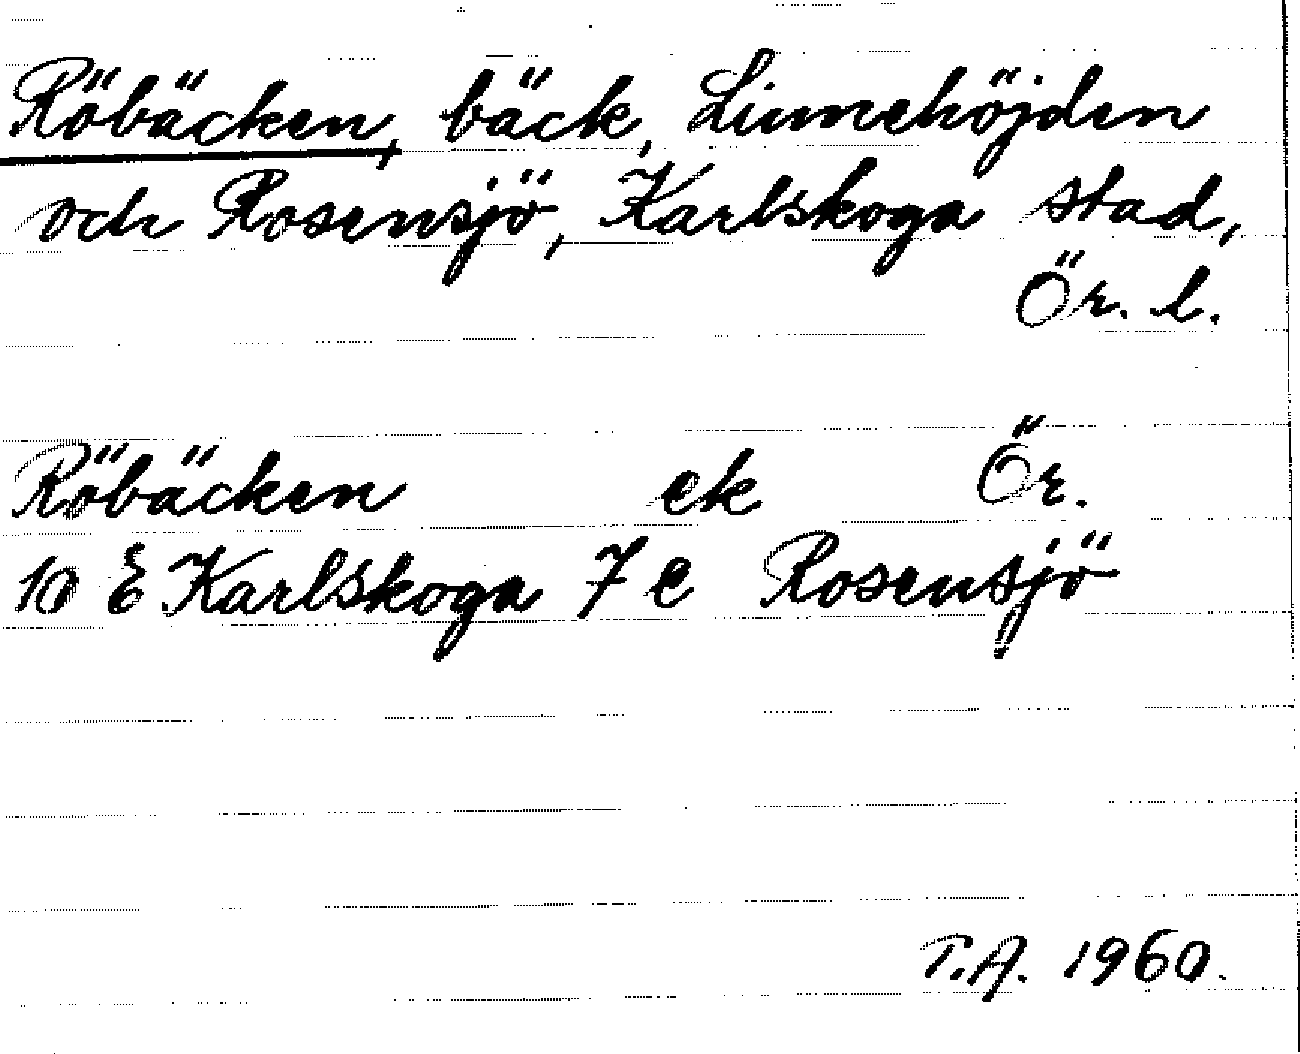 Röbäcken, bäck, Linnehöjden
och Rosensjö, Karlskoga stad,
Ör. l.
Röbäcken ek Ör.
10 E Karlskoga 7 e Rosensjö
T.A. 1960.